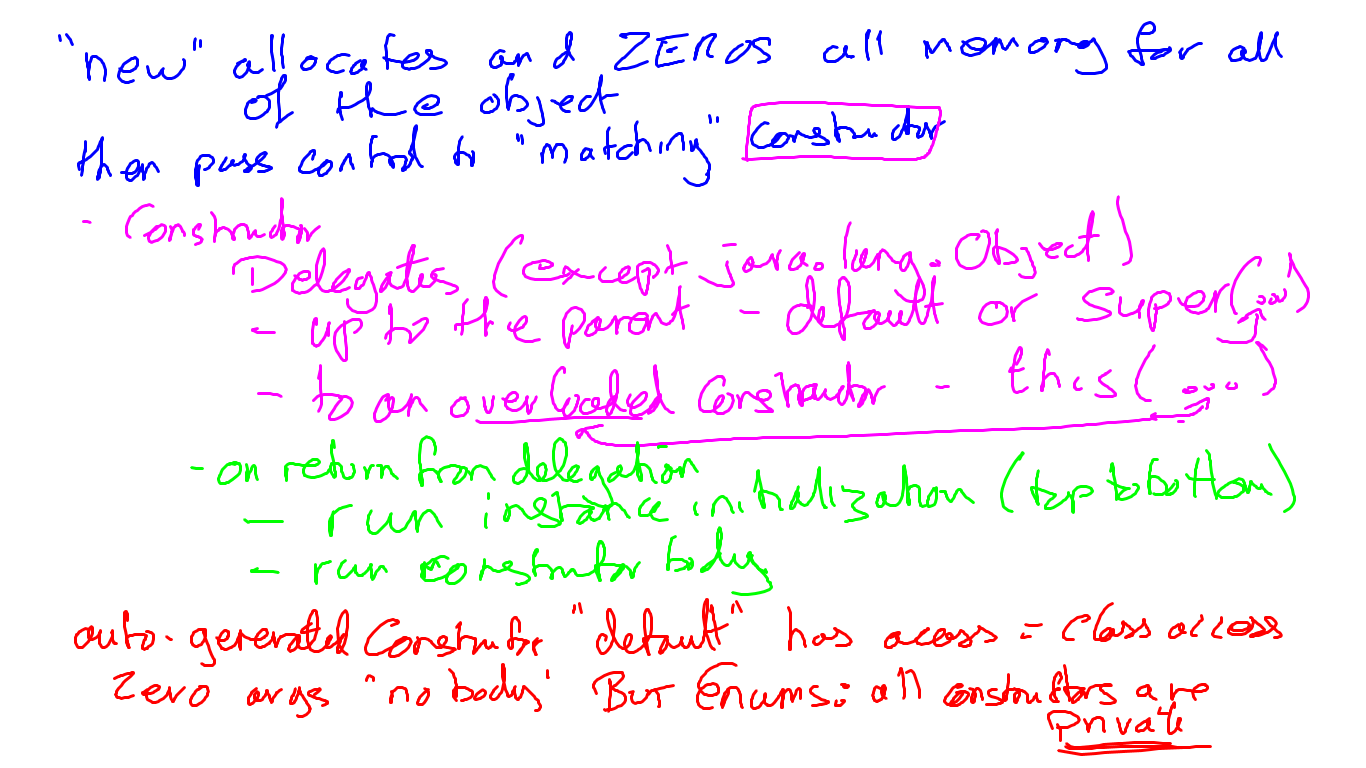 "new" allocates and ZEROS all memory for all
of the object
then pass control to "matching" constructor
- Constructor
Delegates (except java.lang.Object)
- up to the parent - default or super(...)
- to an overloaded constructor - this(...)
- on return from delegation
- run instance initialization (top to bottom)
- run constructor body
auto-generated Constructor "default" has access = class access
Zero args "no body" BUT Enums: all constructors are
private